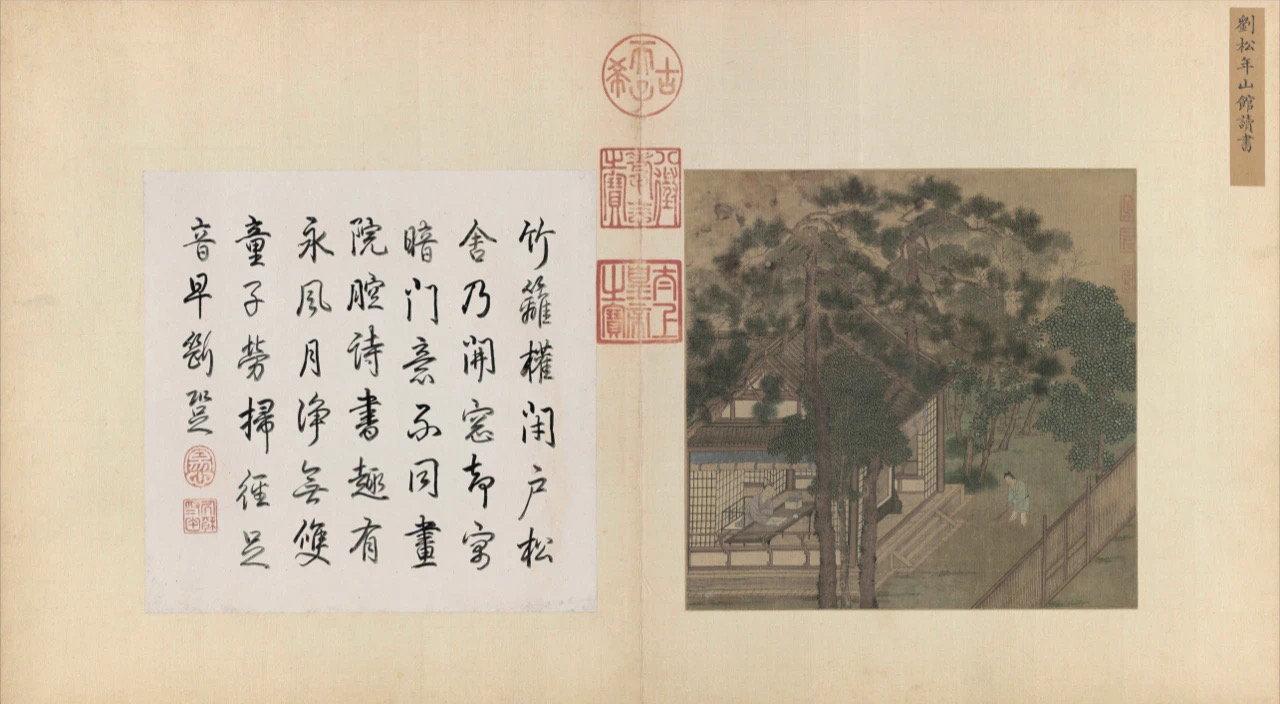 劉松年山館讀書
古希天子
八徵耄念之寶
太上皇帝之寶
竹籬權閉户松
舍乃開窓却寓
暗门意不同畫
院腔詩書趣有
永風月淨無雙
童子勞掃徑足
音早斷跫